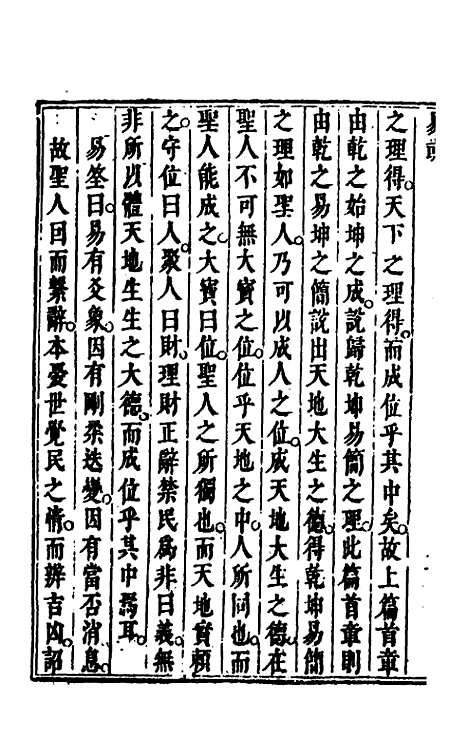 之理得。天下之理得。而成位乎其中矣。故上篇首章
由乾之始坤之成。說歸乾坤易簡之理。此篇首章則
由乾之易坤之簡。說出天地大生之德。得乾坤易簡
之理如聖人。乃可以成人之位。成天地大生之德。在
聖人不可無大寶之位。位乎天地之中。人所同也。而
聖人能成之。大寶曰位。聖人之所獨也。而天地實賴
之。守位曰人。聚人曰財。理財正辭禁民爲非曰義。無
非所以體天地生生之大德。而成位乎其中焉耳。
易筌曰。易有爻象。因有剛柔迭變。因有當否消息。
故聖人因而繫辭。本憂世覺民之情。而辨吉凶。詔